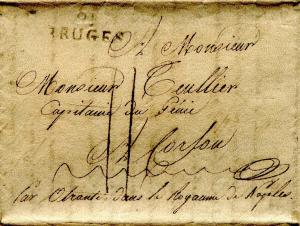 91
BRUGES
A Monsieur
Monsieur Teullier
Capitaine du Génie
A Corfou
par Otrante dans le Royaume de Naples